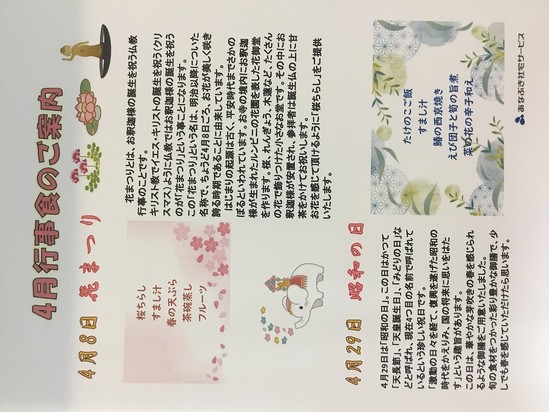 4月行事食のご案内
4月8日 花まつり
花まつりとは、お釈迦様の誕生を祝う仏教
行事のことです。
キリスト教でイエス・キリストの誕生を祝う(クリ
スマス)ように仏教ではお釈迦様の誕生を祝う
のが「花まつり」という事ことになります。
この「花まつり」という名は、明治以降についた
名称で、ちょうど4月8日ごろ、お花が美しく咲き
誇る時期であることに由来しています。
はじまりの起源は古く、平安時代までさかの
ぼるといわれています。お寺の境内にお釈迦
様が生まれたルンビニの花園を表した花御堂
を作ります。桜、れんぎょう、木蓮など、たくさん
の花で飾りつけた小さなお堂です。その中にお
釈迦様が安置され、参拝者は誕生仏の上に甘
茶をかけてお祝いします。
お花を感じて頂けるように「桜ちらし」をご提供
いたします。
桜ちらし
すまし汁
春の天ぷら
茶碗蒸し
フルーツ
4月29日 昭和の日
4月29日は「昭和の日」。この日はかつて
「天長節」、「天皇誕生日」、「みどりの日」な
どと呼ばれ、現在4つ目の名前で呼ばれて
いるという珍しい祝日です。
「激動の日々を経て、復興を遂げた昭和の
時代をかえりみ、国の将来に思いをはた
す」という趣旨があります。
この日は、華やかな芽吹きの春を感じられ
るような御膳をご用意いたしました。
旬の食材をつかった彩り豊かな御膳で、少
しでも春を感じていただけたらと思います。
たけのこご飯
すまし汁
鰆の西京焼き
えび団子と筍の旨煮
菜の花の辛子和え
まなぶ寮社宅サービス